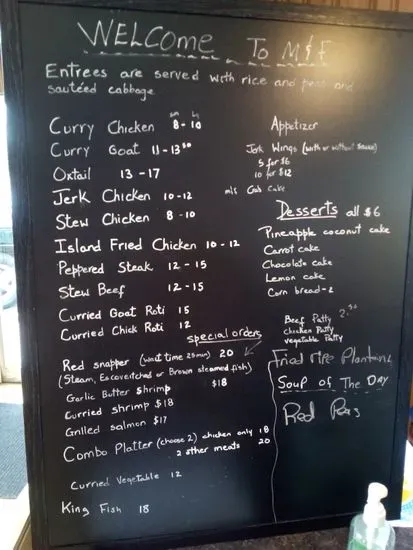 WELCOME TO M&F
Entrees are served with rice and peas and
sautéed cabbage
sm lg
Curry Chicken 8-10
Curry Goat 11-13⁵⁰
Oxtail 13-17
Jerk Chicken 10-12
Stew Chicken 8-10
Island Fried Chicken 10-12
Peppered Steak 12-15
Stew Beef 12-15
Curried Goat Roti 15
Curried Chick Roti 12
special orders
Red snapper (wait time 25min) 20
(Steam, Escoveitched or Brown steamed fish)
Garlic Butter shrimp $18
Curried shrimp $18
Grilled salmon $17
Combo Platter (choose 2) chicken only 18
2 other meats 20
Curried Vegetable 12
King Fish 18
Appetizer
Jerk Wings (with or without sauce)
5 for $6
10 for $12
Crab Cake
Desserts all $6
Pineapple coconut cake
Carrot cake
Chocolate cake
Lemon cake
Corn bread-2
Beef Patty 2.50
chicken Patty
vegetable Patty
Fried ripe Plantains
Soup of The Day
Red Peas